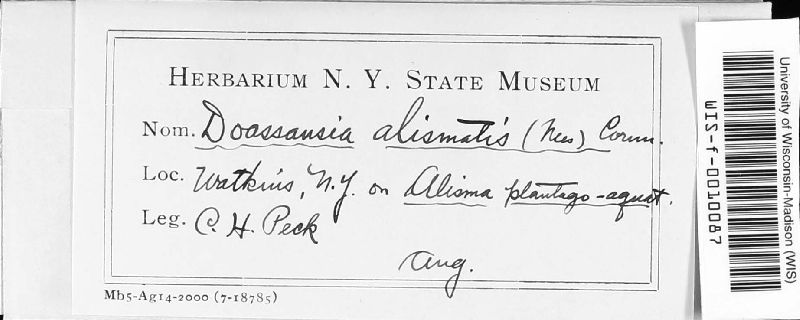 HERBARIUM N. Y. STATE MUSEUM
Nom. Doassansia alismatis (Nees) Cornu.
Loc. Watkins, N.Y. on Alisma plantago-aquat.
Leg. C. H. Peck
Aug.
Mb5-Ag14-2000 (7-18785)
University of Wisconsin-Madison (WIS)
WIS-f-0010087